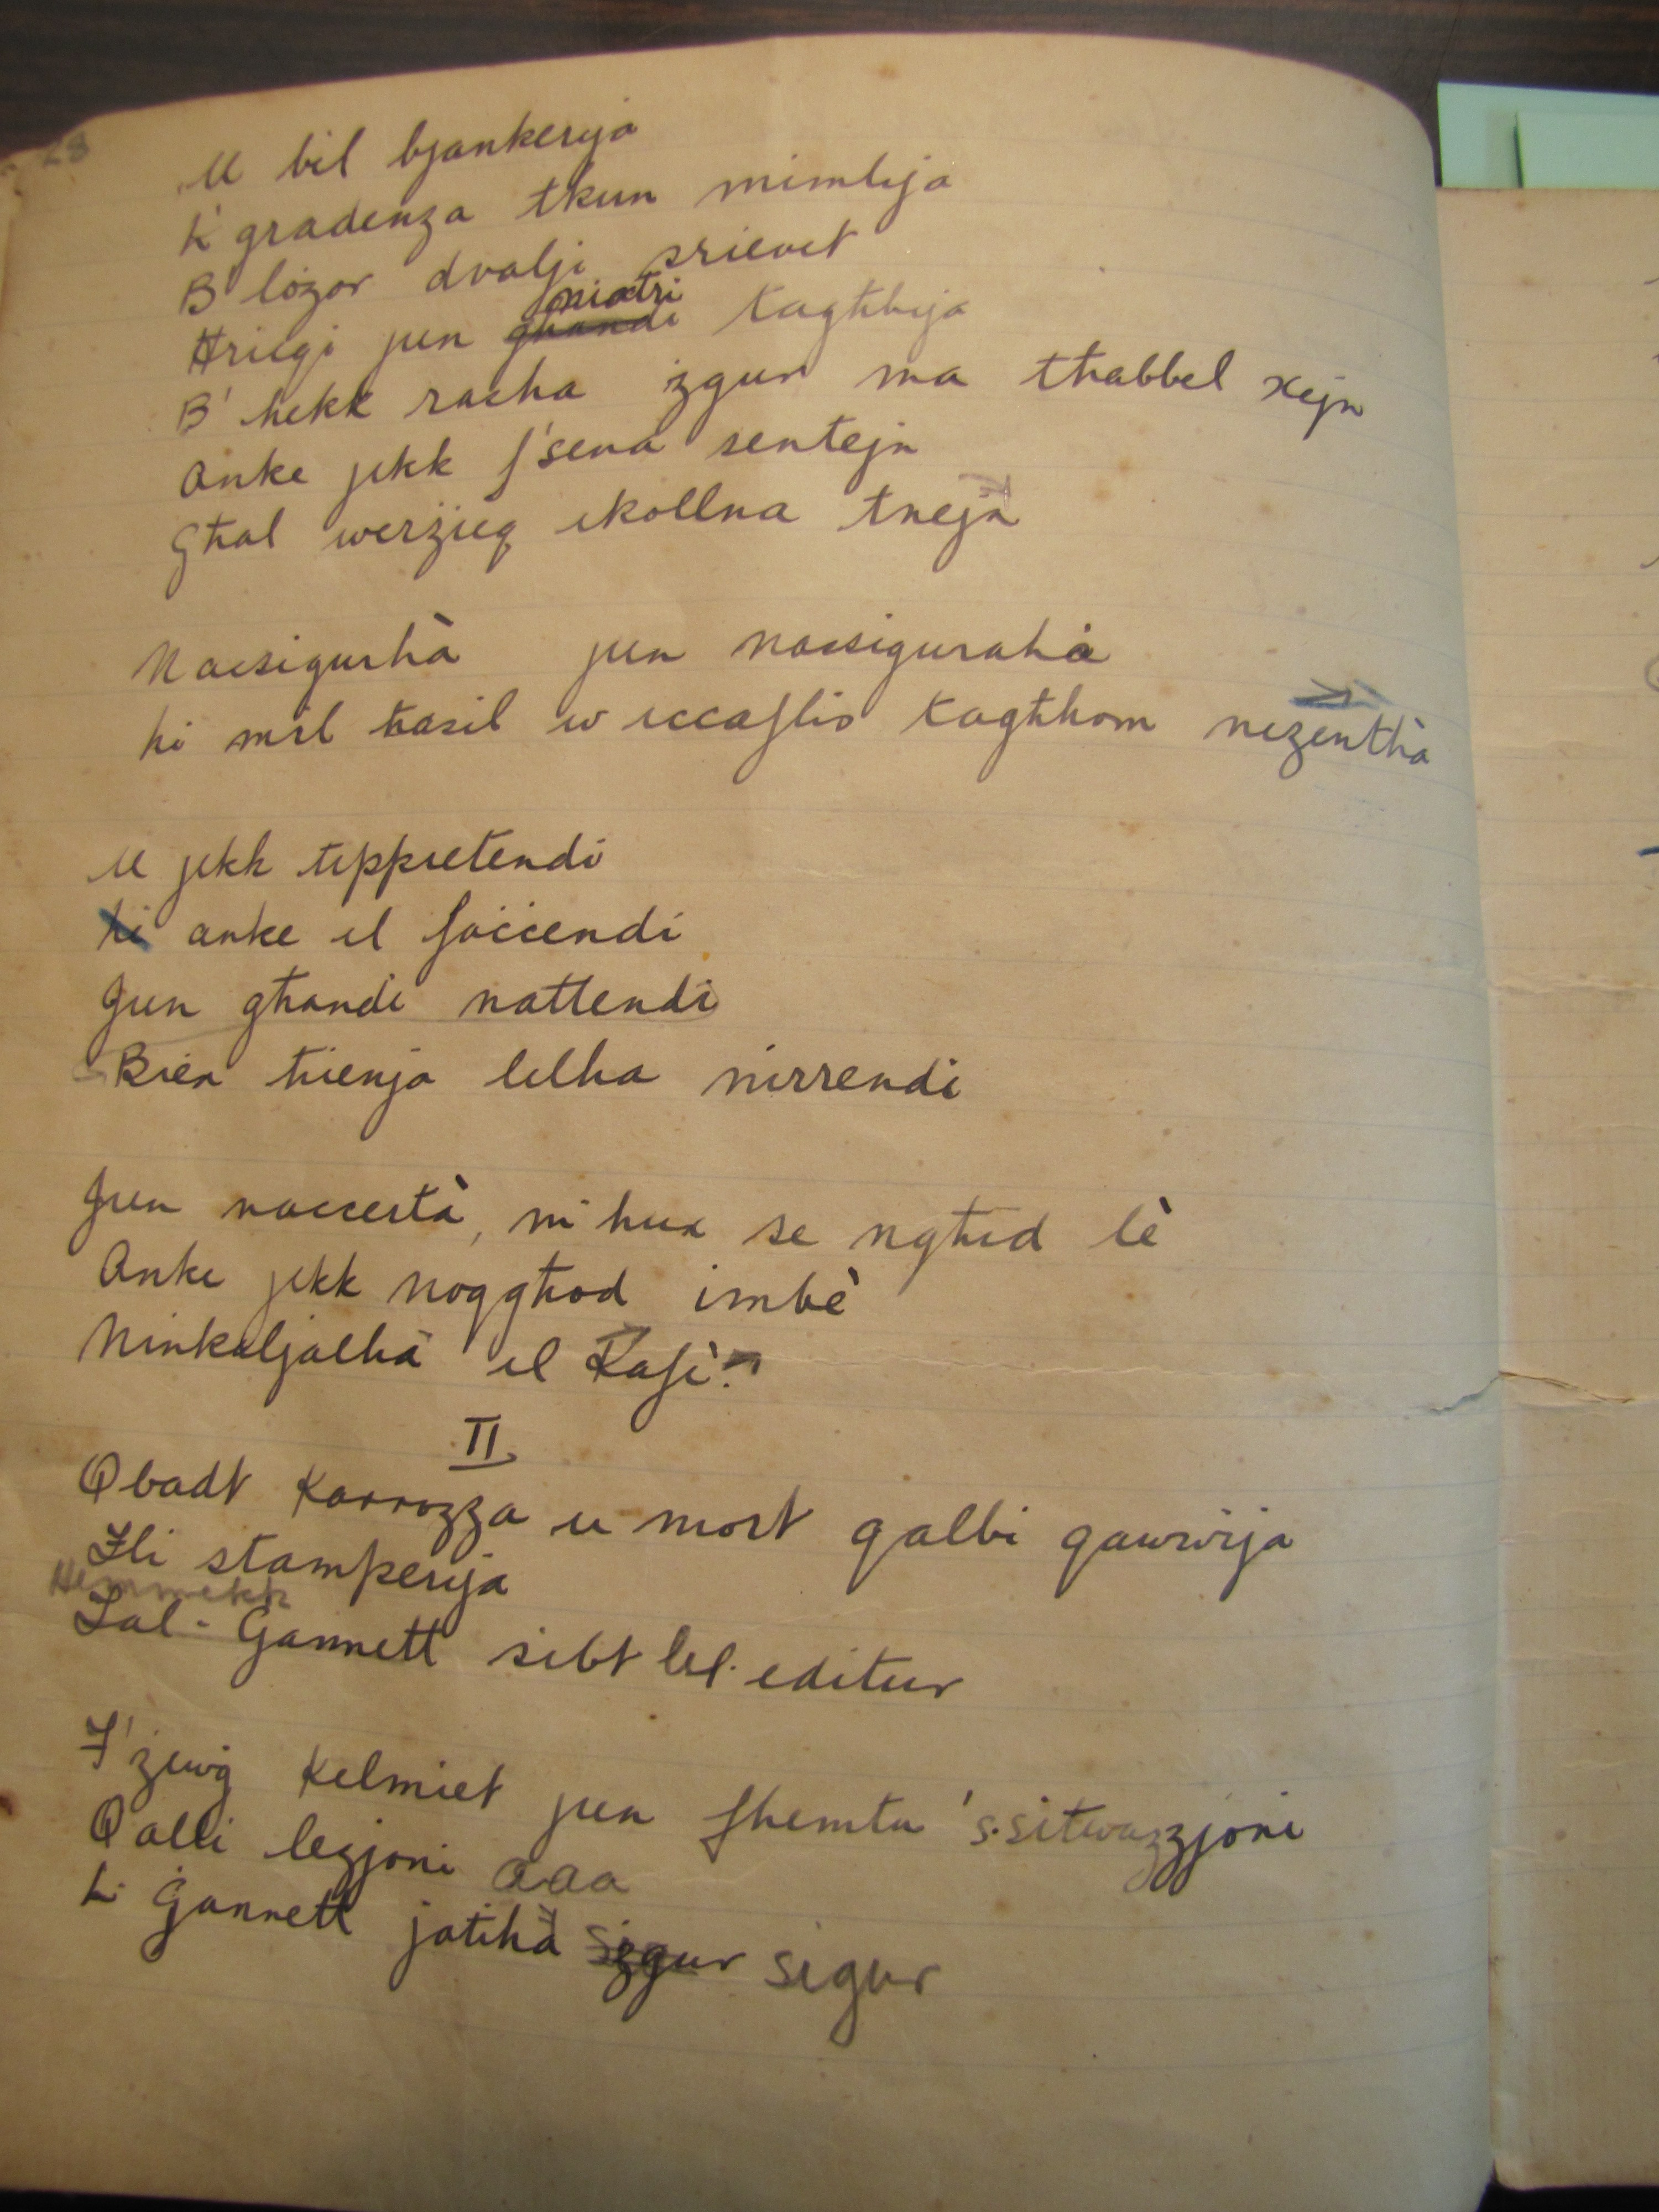 28
U bil bjankerija
L' gradenza tkun mimlija
B' lożor dvalji srievet
Ħrieġi jien niatri tagħhija
B' hekk rasha żgur ma tħabbel xejn
Anke jekk f'sena sentejn
Għal werżieq ikollna tnejn
Nassigurhà jien nassigurahà
li mil ħasil w iccaflis tagħhom neżentha
U jekk tippretendi
li anke il faċċendi
Jien għandi nattendi
Bien ħienja lilha nirrendi
Jien naccertà, m'hux se ngħid lè
Anke jekk noqgħod imbè
Ninkaljalhà il Kafè."
II
Qbadt karrozza u mort qalbi qawwija
Ili stamperija
Hemmekk
Lal-Gannett sibt lil-editur
F'żewġ kelmiet jien fhemtu 's-sitwazzjoni
Qalli lezjoni aaa
L-Gannett jatiha sigur